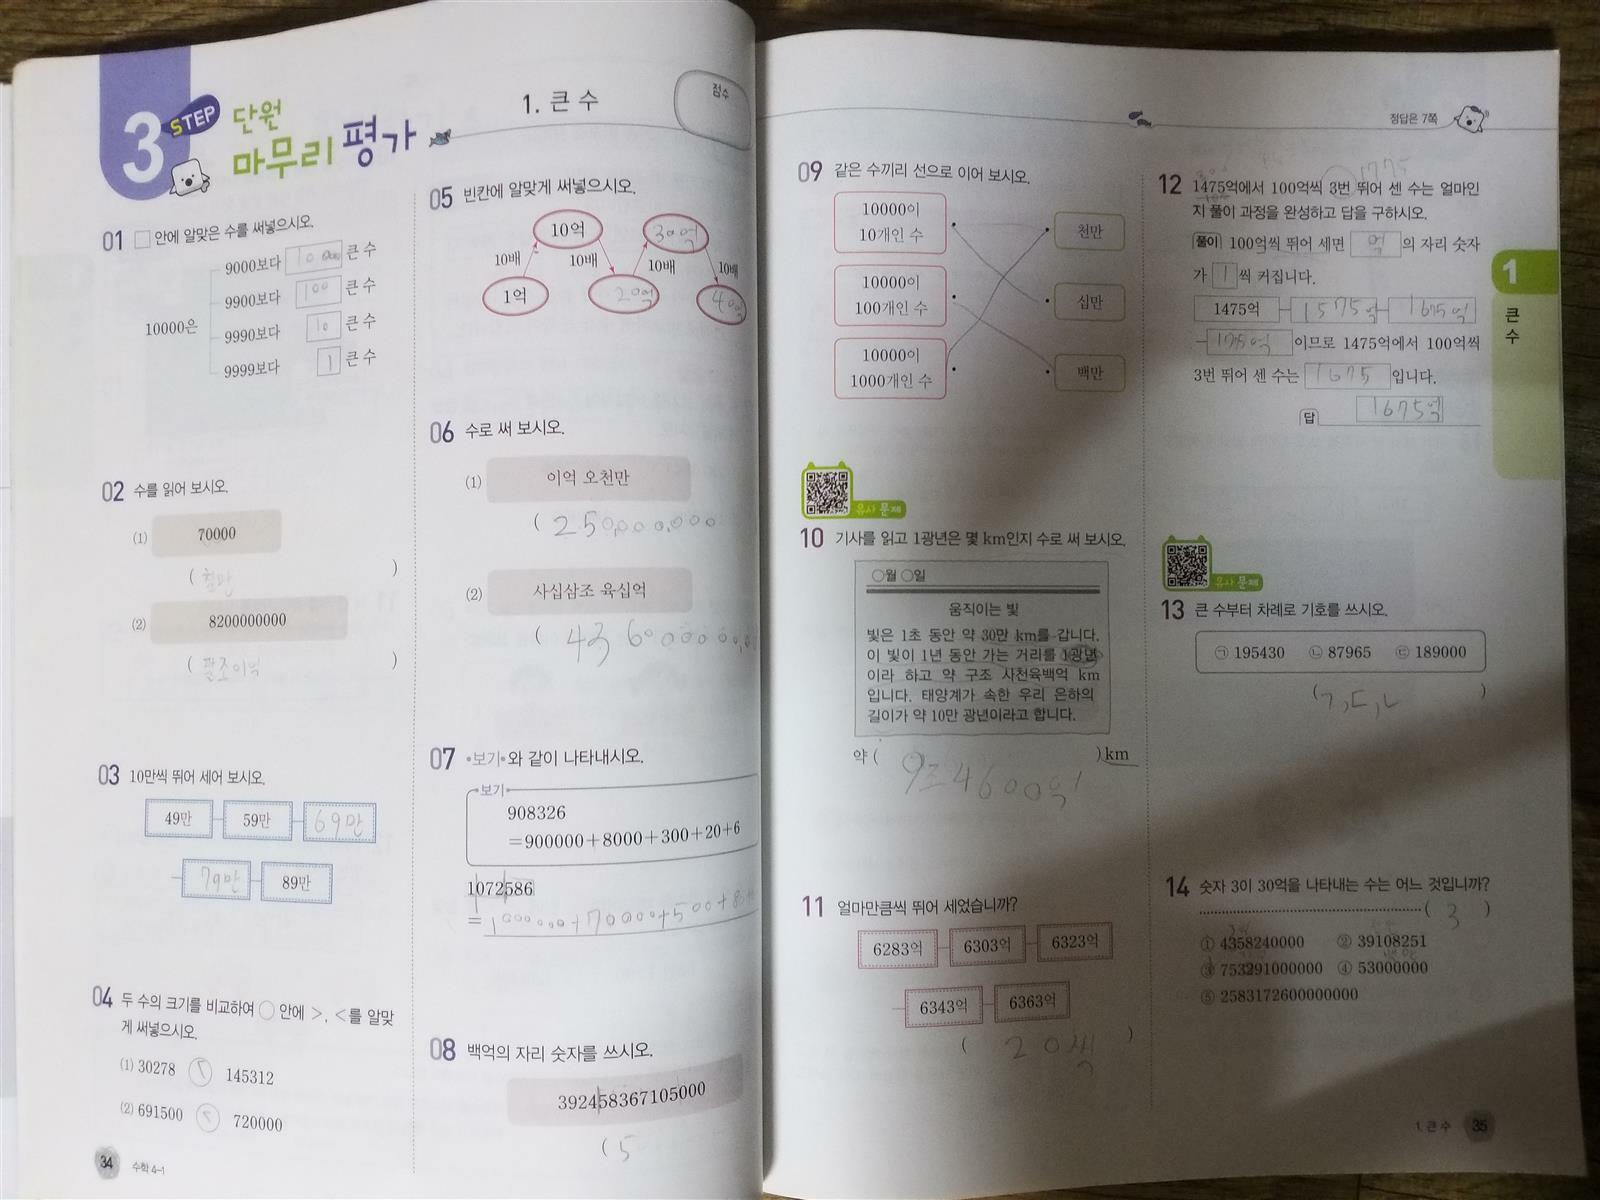 3
STEP
단원
마무리 평가
1. 큰 수
점수
01 □ 안에 알맞은 수를 써넣으시오.
10000은
9000보다 1000 큰 수
9900보다 100 큰 수
9990보다 10 큰 수
9999보다 1 큰 수
02 수를 읽어 보시오.
(1) 70000
( 칠만 )
(2) 8200000000
( 팔조이억 )
03 10만씩 뛰어 세어 보시오.
49만 59만 69만
79만 89만
04 두 수의 크기를 비교하여 ○ 안에 >, <를 알맞
게 써넣으시오.
(1) 30278 < 145312
(2) 691500 < 720000
34 수학 4-1
05 빈칸에 알맞게 써넣으시오.
10억 30억
10배 10배 10배 10배
1억 20억 40억
06 수로 써 보시오.
(1) 이억 오천만
( 250,000,000
(2) 사십삼조 육십억
(
07 •보기•와 같이 나타내시오.
보기
908326
=900000+8000+300+20+6
1072586
= 1000000+70000+500+80
08 백억의 자리 숫자를 쓰시오.
392458367105000
( 5
정답은 7쪽
09 같은 수끼리 선으로 이어 보시오.
10000이
10개인 수
천만
10000이
100개인 수
십만
10000이
1000개인 수
백만
유사 문제
10 기사를 읽고 1광년은 몇 km인지 수로 써 보시오.
○월 ○일
움직이는 빛
빛은 1초 동안 약 30만 km를 갑니다.
이 빛이 1년 동안 가는 거리를 1광년
이라 하고 약 구조 사천육백억 km
입니다. 태양계가 속한 우리 은하의
길이가 약 10만 광년이라고 합니다.
약 ( 9조4600억 ) km
11 얼마만큼씩 뛰어 세었습니까?
6283억 6303억 6323억
6343억 6363억
( 20억 )
1775
12 1475억에서 100억씩 3번 뛰어 센 수는 얼마인
지 풀이 과정을 완성하고 답을 구하시오.
풀이 100억씩 뛰어 세면 억 의 자리 숫자
가 1 씩 커집니다.
1475억 1575억 1675억
175억 이므로 1475억에서 100억씩
3번 뛰어 센 수는 1675 입니다.
답 1675억
유사 문제
13 큰 수부터 차례로 기호를 쓰시오.
㉠ 195430 ㉡ 87965 ㉢ 189000
( ㄱ,ㄷ,ㄴ )
14 숫자 3이 30억을 나타내는 수는 어느 것입니까?
( 3 )
① 4358240000 ② 39108251
③ 753291000000 ④ 53000000
⑤ 2583172600000000
1
큰
수
1. 큰 수 35